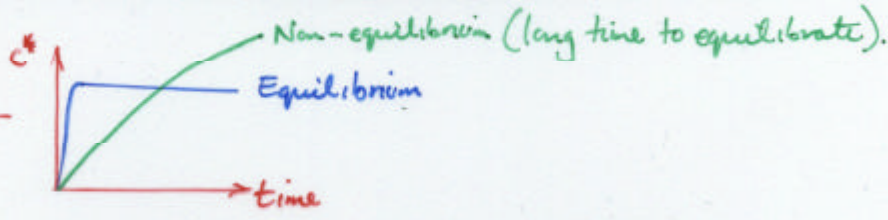 Non-equilibrium (long time to equilibrate).
C*
Equilibrium
time